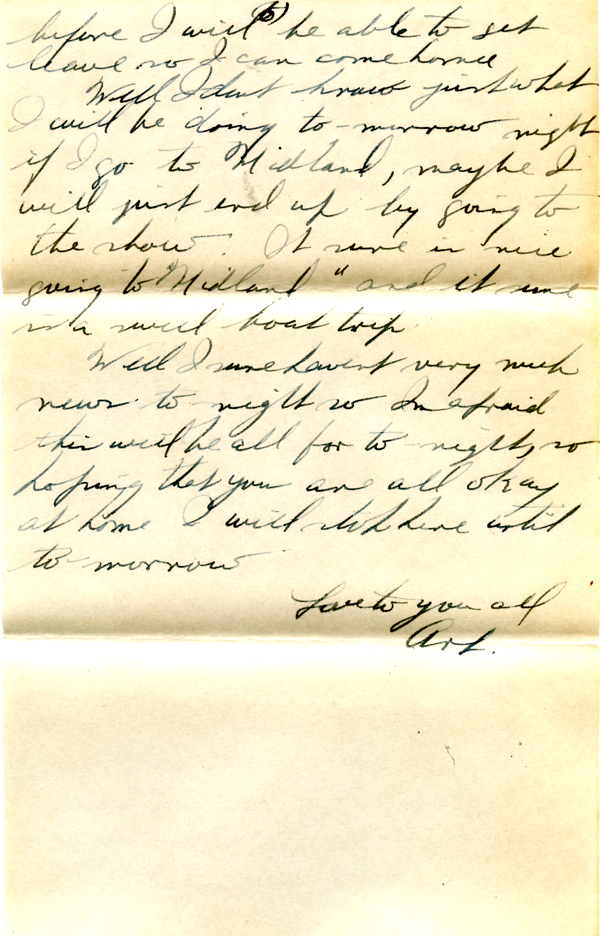 6)
before I will be able to get
leave so I can come home
Well I dont know just what
I will be doing to-morrow night
if I go to Midland, maybe I
will just end up by going to
the show. It sure is nice
going to "Midland" and it sure
is a swell boat trip.
Well I sure havent very much
news to-night so Im afraid
this will be all for to-night, so
hoping that you are all okay
at home I will stop here until
to-morrow
Love to you all
Art.